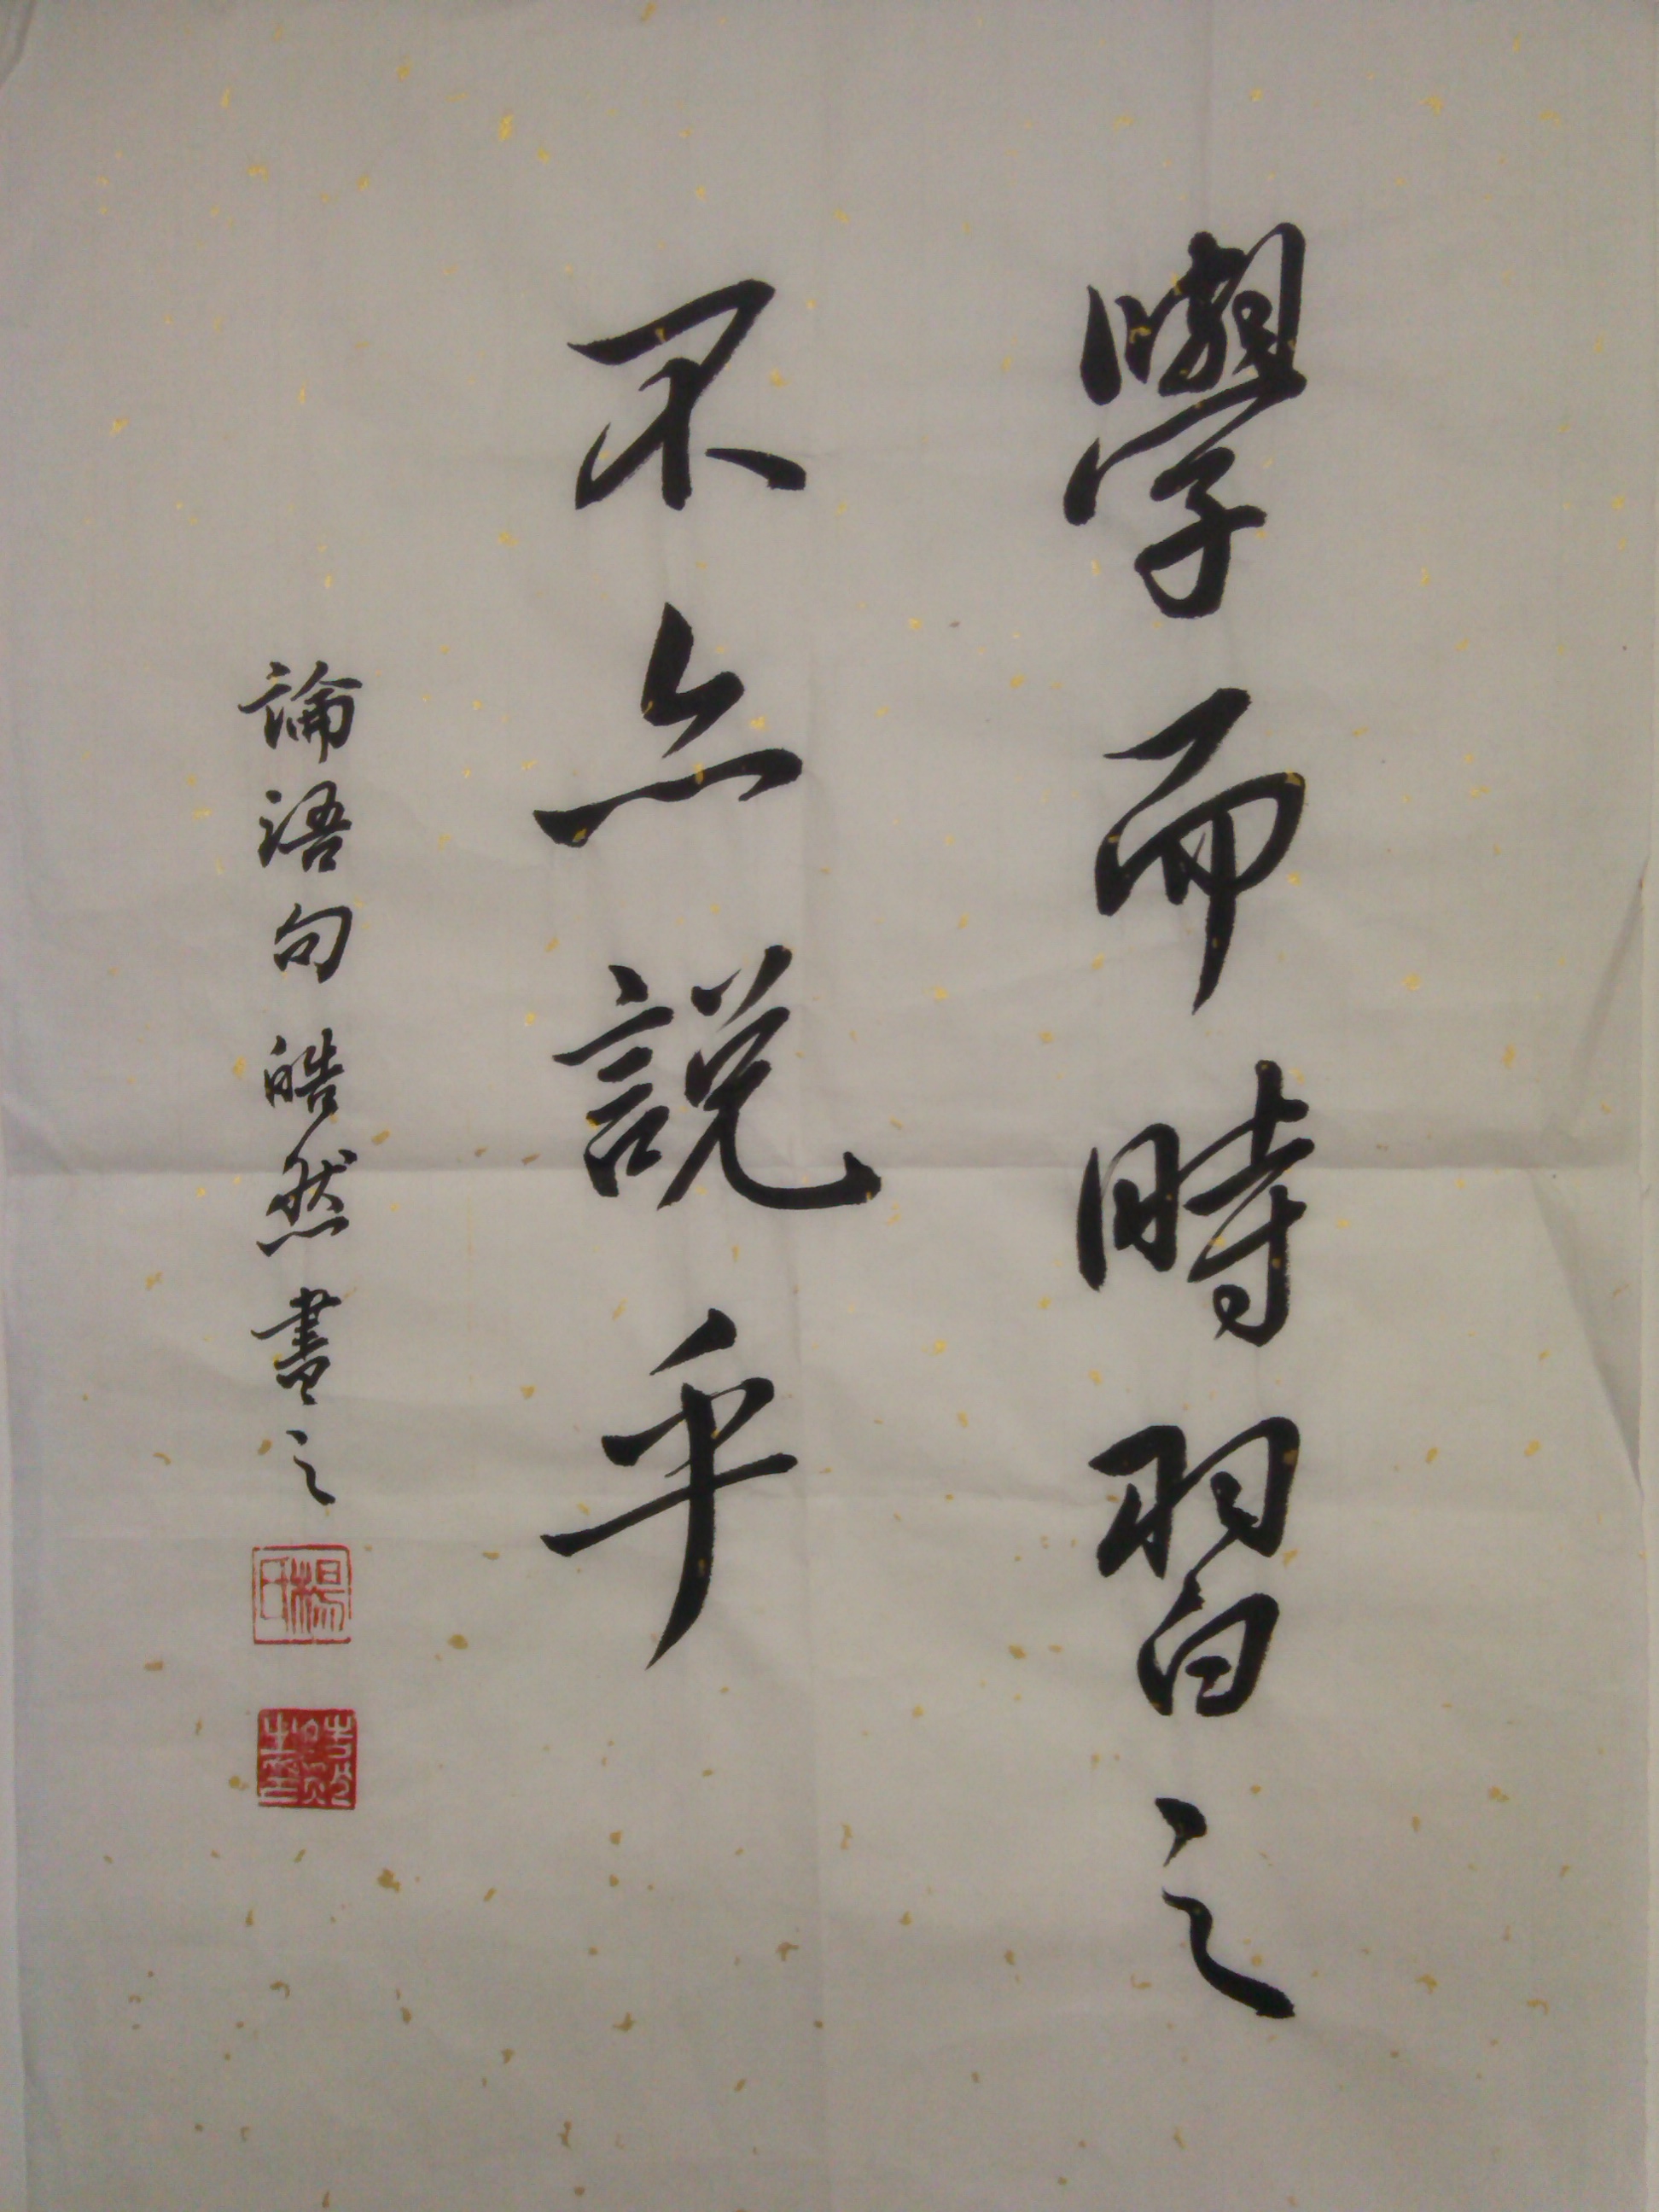 學而時習之
不亦説乎
論語句 皓然書之
楊